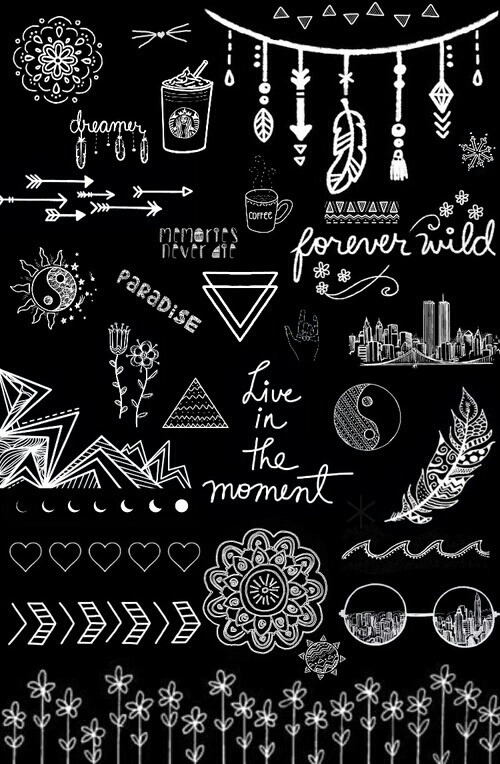 dreamer
PARADISE
memories
never die
Live
in
the
moment
COFFEE
forever wild